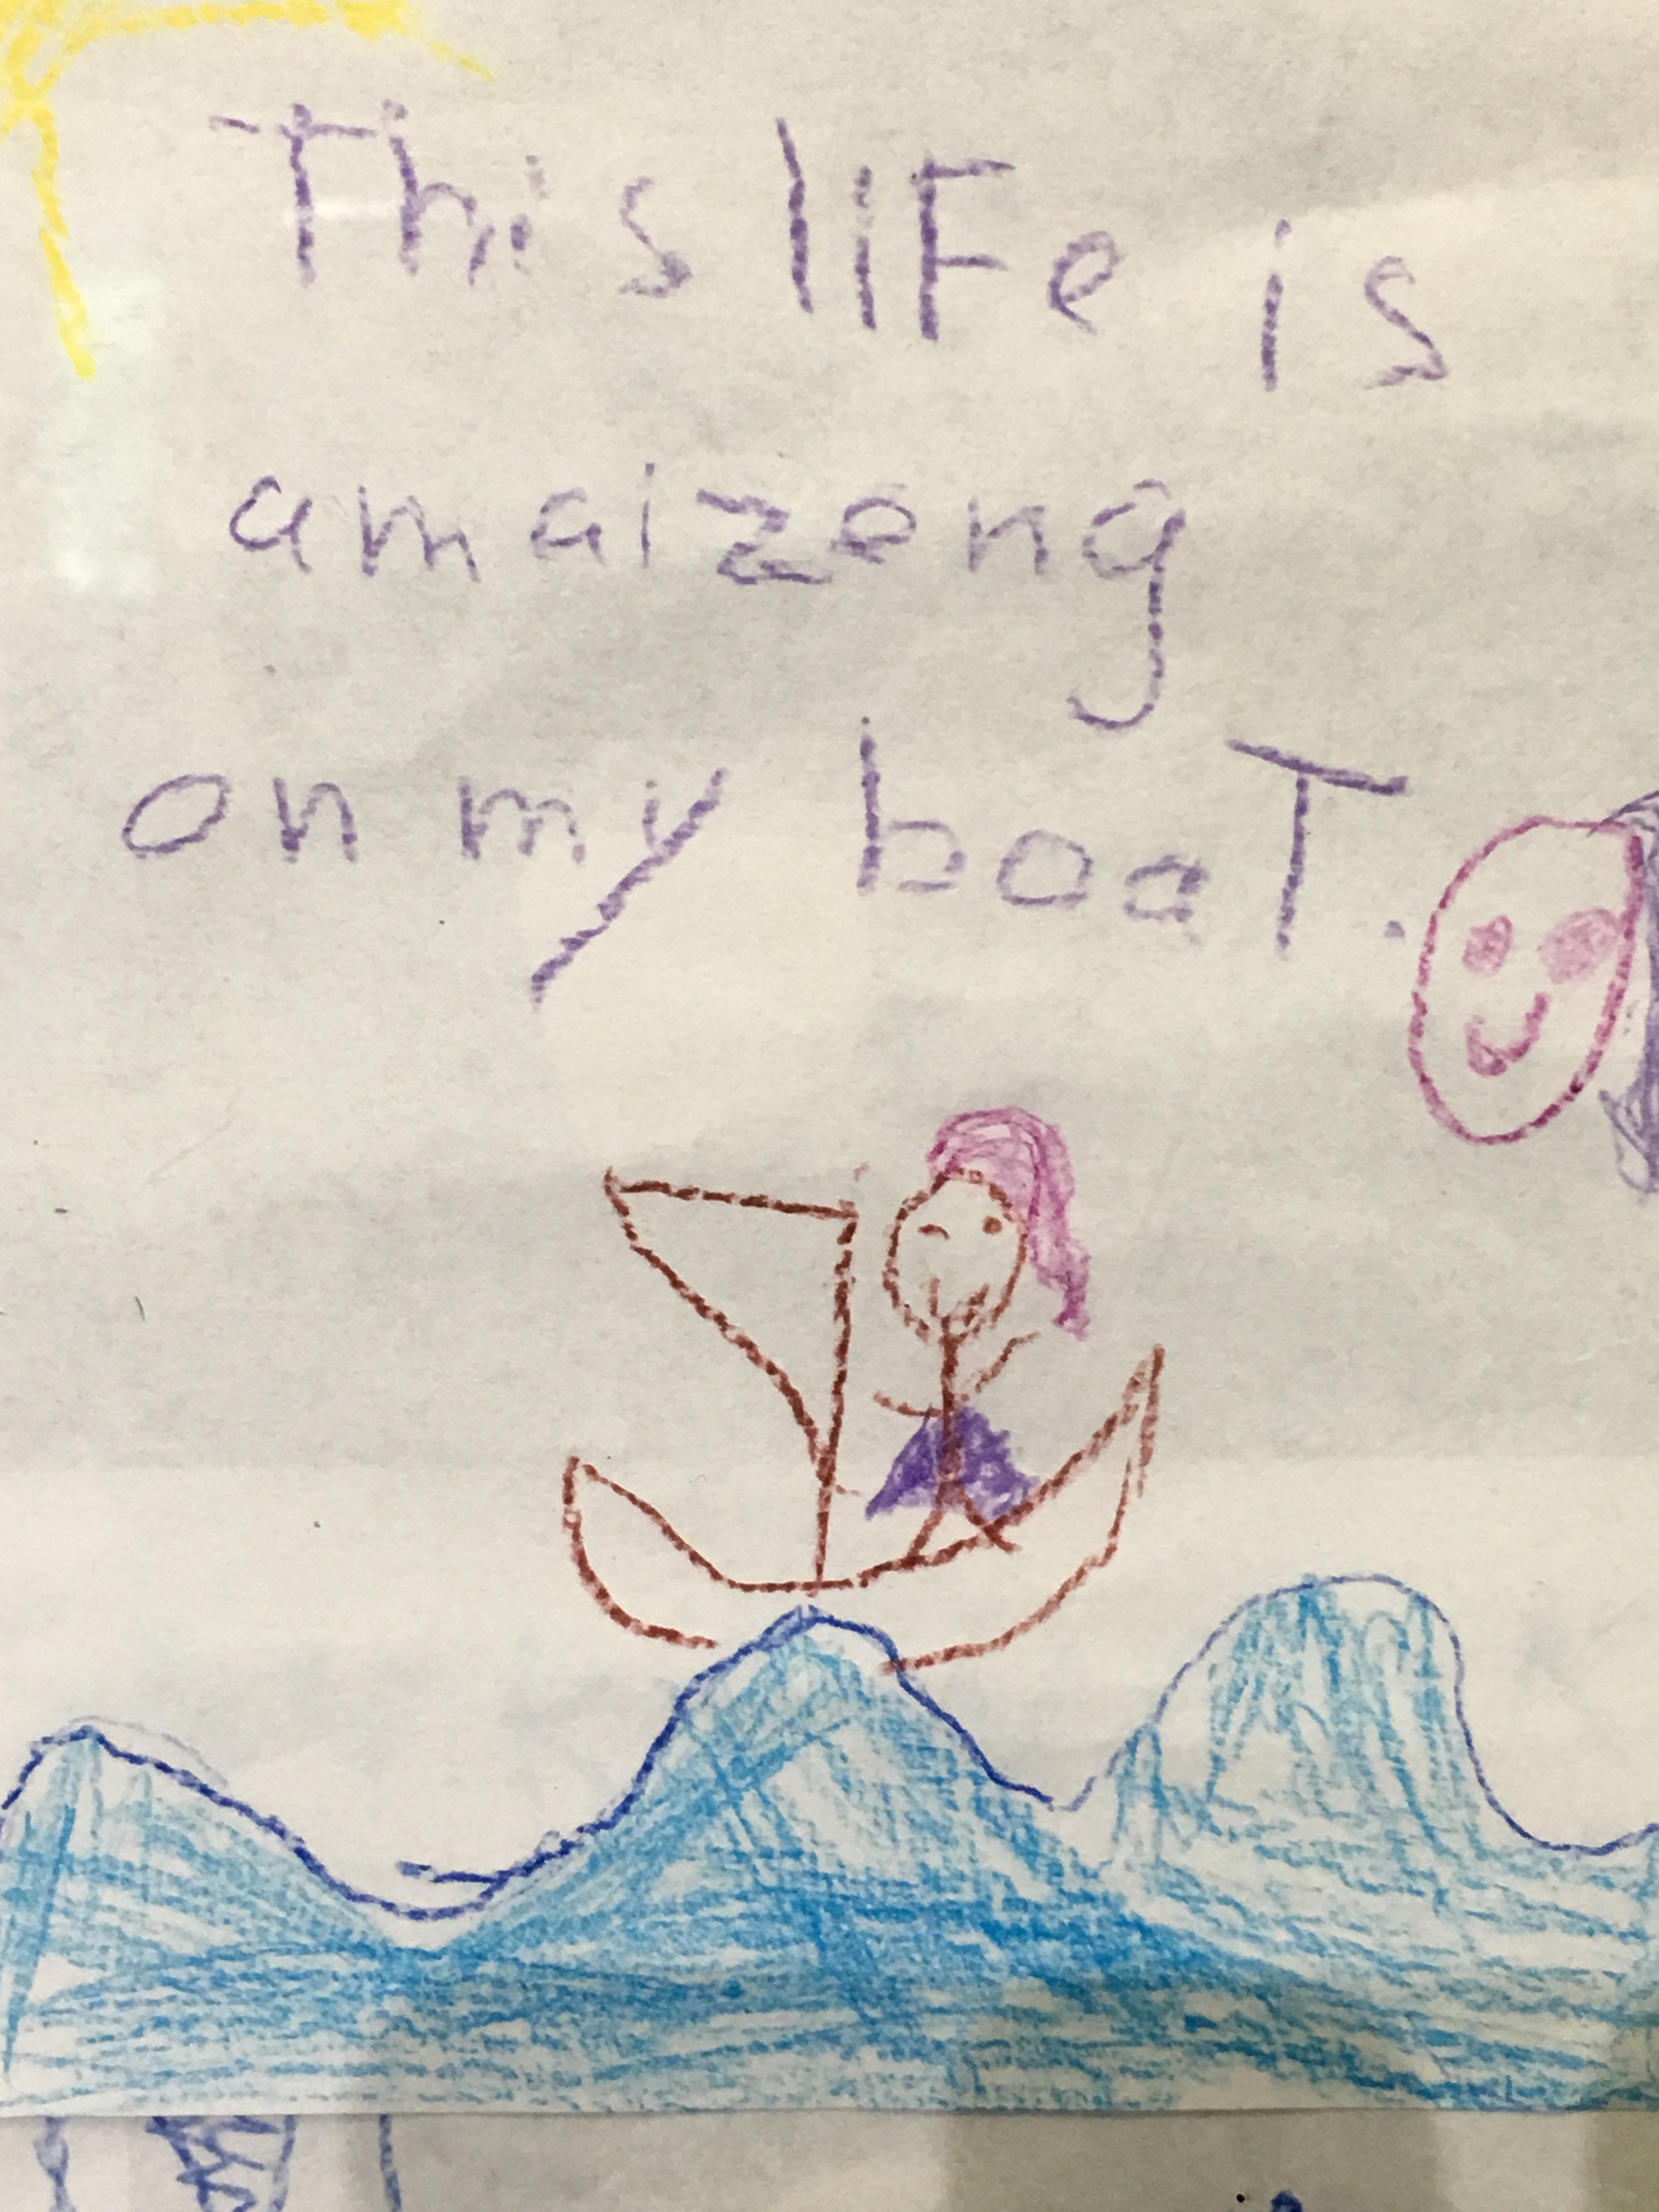 This liFe is
amaizeng
on my boaT.